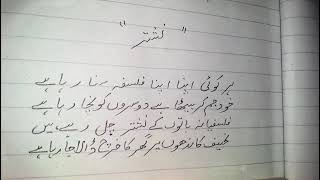 "نشتر"
ہر کوئی اپنا اپنا فلسفہ سنا رہا ہے
خود جم کر بیٹھا ہے دوسروں کو نچا رہا ہے
فلسفیانہ باتوں کے نشتر چل رہے ہیں
نحیف کاندھوں پر گھر کا خرچ ڈالا جا رہا ہے